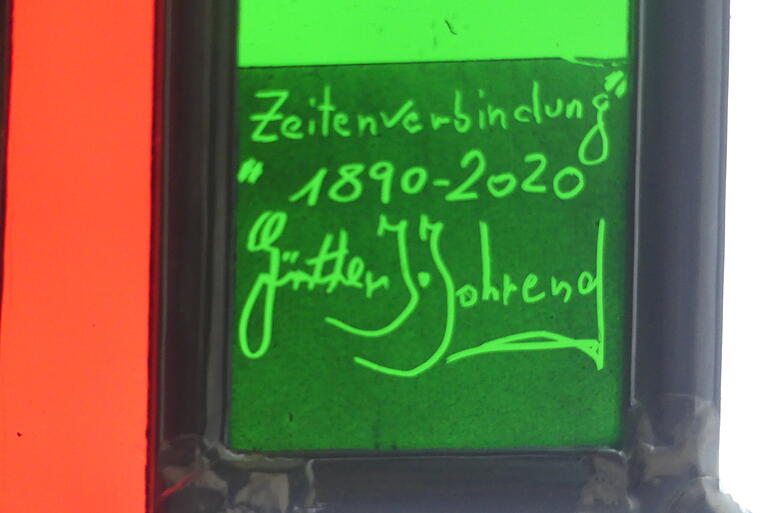 Zeitenverbindung"
" 1890-2020
Günther J. Johrend